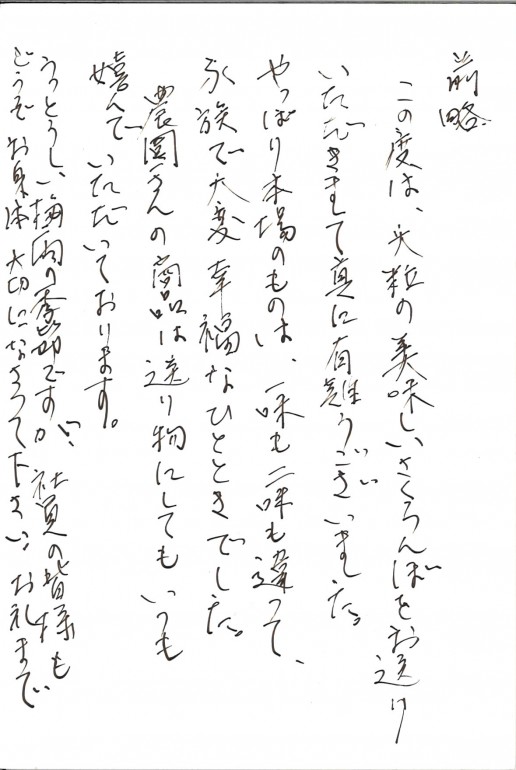 前略
この度は、大粒の美味しいさくらんぼをお送り
いただきまして真に有難うございました。
やっぱり本場のものは、一味も二味も違って、
家族で大変幸福なひとときでした。
農園さんの商品は送り物にしてもいつも
嬉んでいただいております。
うっとうしい梅雨の季節ですが、社員の皆様も
どうぞお身体大切になさって下さい。お礼まで